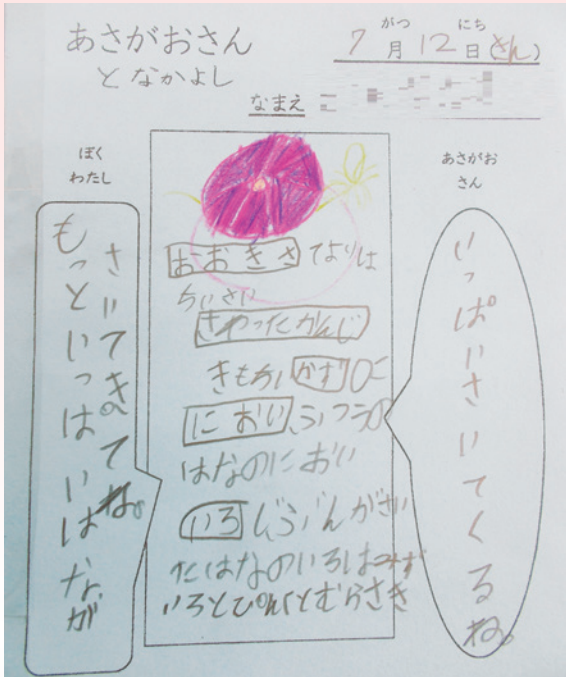 あさがおさん
となかよし
7月12日(きん)
がつ
にち
なまえ
ぼく
わたし
もっといっぱいはなが
さいてきてね。
おおきさ てよりは
ちいさい
さわったかんじ
きもちい かず 10こ
におい ふつうの
はなのにおい
いろ じぶんがさい
たはなのいろはみず
いろとぴんくとむらさき
あさがお
さん
いっぱいさいてくるね。